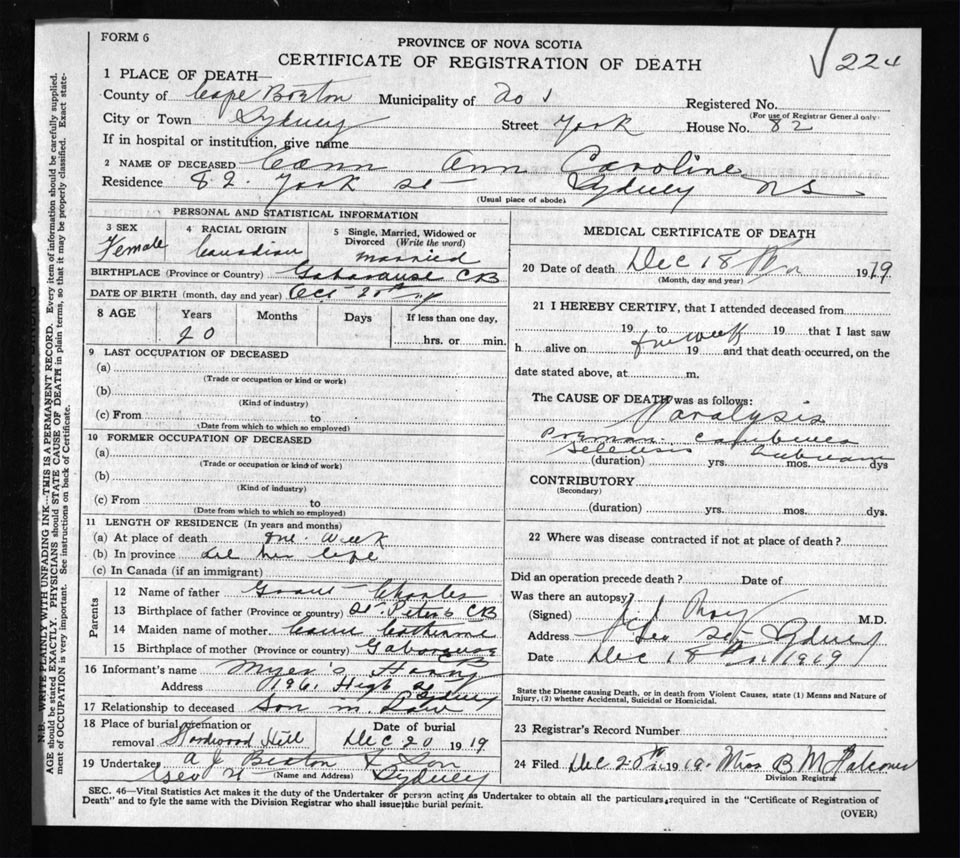 FORM 6
PROVINCE OF NOVA SCOTIA
CERTIFICATE OF REGISTRATION OF DEATH
√224
1 PLACE OF DEATH—
County of Cape Breton Municipality of No 1 Registered No.
(For use of Registrar General only)
City or Town Sydney Street York House No. 82
If in hospital or institution, give name
2 NAME OF DECEASED Cann Ann Caroline
Residence 82 York St Sydney NS
(Usual place of abode)
PERSONAL AND STATISTICAL INFORMATION
3 SEX
Female
4 RACIAL ORIGIN
Canadian
5 Single, Married, Widowed or Divorced (Write the word)
Married
BIRTHPLACE (Province or Country) Gabarouse CB
DATE OF BIRTH (month, day and year) Oct 20th
8 AGE Years Months Days If less than one day,
hrs. or min.
9 LAST OCCUPATION OF DECEASED
(a)
(Trade or occupation or kind or work)
(b)
(Kind of industry)
(c) From to
(Date from which to which so employed)
10 FORMER OCCUPATION OF DECEASED
(a)
(Trade or occupation or kind of work)
(b)
(Kind of industry)
(c) From to
(Date from which to which so employed)
11 LENGTH OF RESIDENCE (In years and months)
(a) At place of death One Week
(b) In province her life
(c) In Canada (if an immigrant)
Parents
12 Name of father Grant Charles
13 Birthplace of father (Province or country) St. Peters CB
14 Maiden name of mother Catherine
15 Birthplace of mother (Province or country) Gabarouse CB
16 Informant's name Myer's Harry
Address 196 High St Sydney
17 Relationship to deceased Son in Law
18 Place of burial, cremation or removal Hardwood Hill
Date of burial Dec 20 1919
19 Undertaker A J Beaton & Son
(Name and Address) Geo St Sydney
MEDICAL CERTIFICATE OF DEATH
20 Date of death Dec 18th 1919
(Month, day and year)
21 I HEREBY CERTIFY, that I attended deceased from
19 to 19 that I last saw
h alive on 19 and that death occurred, on the
date stated above, at m.
The CAUSE OF DEATH was as follows:
Paralysis
(duration) yrs. mos. dys
CONTRIBUTORY
(Secondary)
(duration) yrs. mos. dys.
22 Where was disease contracted if not at place of death?
Did an operation precede death? Date of
Was there an autopsy
(Signed) M.D.
Address Geo St Sydney
Date Dec 18th 1919
State the Disease causing Death, or in death from Violent Causes, state (1) Means and Nature of
Injury, (2) whether Accidental, Suicidal or Homicidal.
23 Registrar's Record Number
24 Filed Dec 20th 1919. Miss B Falconer
Division Registrar
SEC. 46—Vital Statistics Act makes it the duty of the Undertaker or person acting as Undertaker to obtain all the particulars required in the "Certificate of Registration of
Death" and to fyle the same with the Division Registrar who shall issue the burial permit.
(OVER)
N.B.—WRITE PLAINLY WITH UNFADING INK—THIS IS A PERMANENT RECORD. Every item of information should be carefully supplied.
AGE should be stated EXACTLY. PHYSICIANS should STATE CAUSE OF DEATH in plain terms, so that it may be properly classified. Exact state-
ment of OCCUPATION is very important. See instructions on back of Certificate.